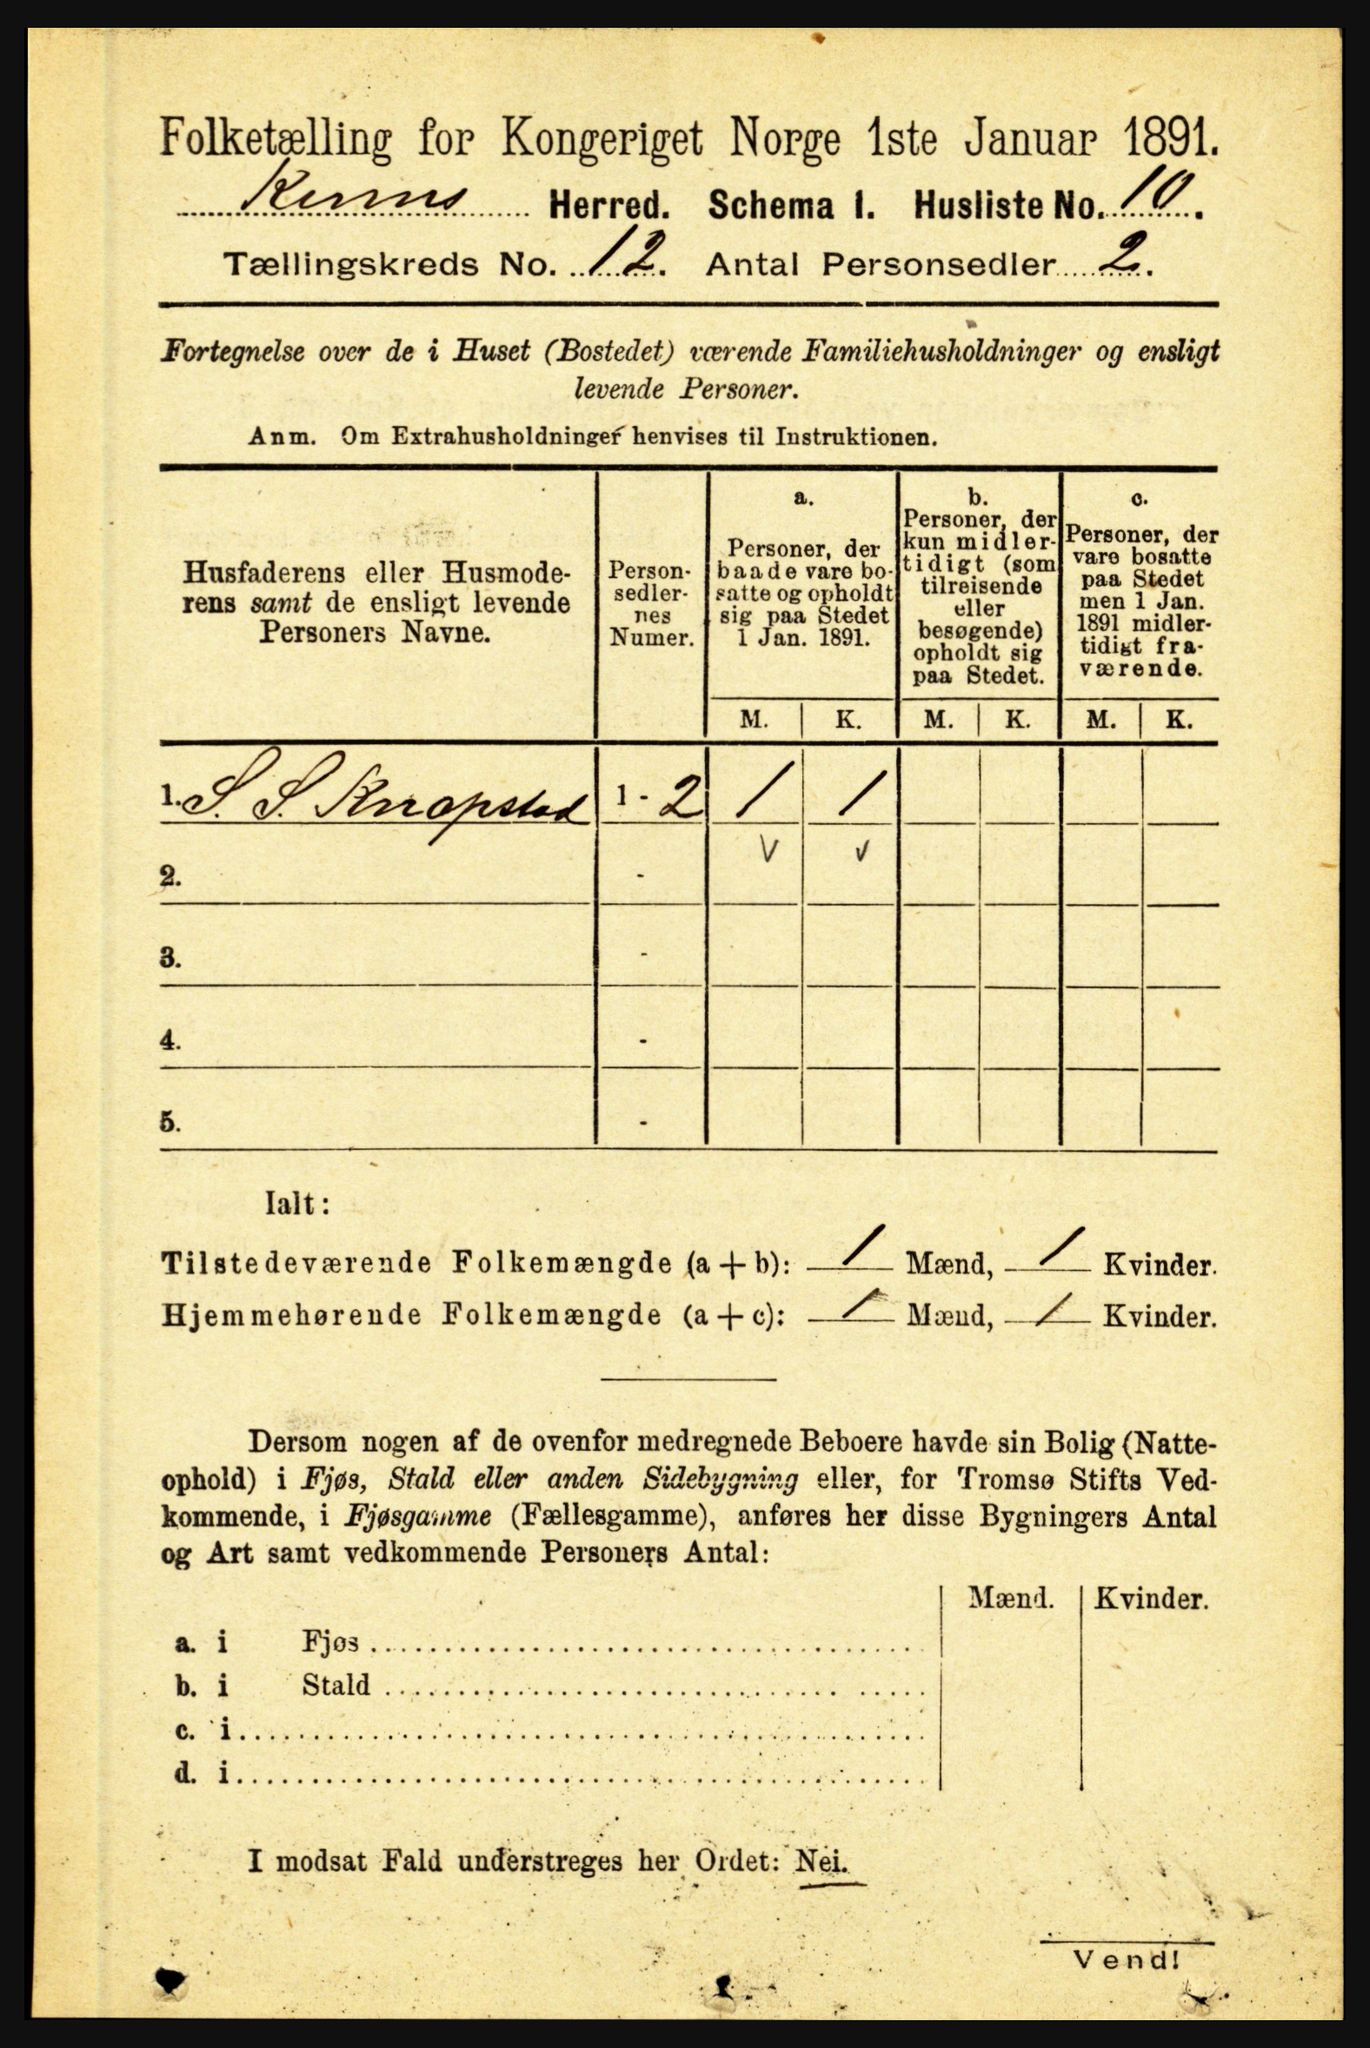 Folketælling for Kongeriget Norge 1ste Januar 1891.
Kinns Herred. Schema 1. Husliste No. 10.
Tællingskreds No. 12. Antal Personsedler 2.
Fortegnelse over de i Huset (Bostedet) værende Familiehusholdninger og ensligt
levende Personer.
Anm. Om Extrahusholdninger henvises til Instruktionen.
Husfaderens eller Husmode-
rens samt de ensligt levende
Personers Navne.
Person-
sedler-
nes
Numer.
a.
Personer, der
baade vare bo-
satte og opholdt
sig paa Stedet
1 Jan. 1891.
b.
Personer, der
kun midler-
tidigt (som
tilreisende
eller
besøgende)
opholdt sig
paa Stedet.
c.
Personer, der
vare bosatte
paa Stedet
men 1 Jan.
1891 midler-
tidigt fra-
værende.
M. K. M. K. M. K.
1. S. S. Knapstad 1 - 2 1 1
2. -
3. -
4. -
5. -
Ialt:
Tilstedeværende Folkemængde (a + b): 1 Mænd, 1 Kvinder.
Hjemmehørende Folkemængde (a + c): 1 Mænd, 1 Kvinder.
Dersom nogen af de ovenfor medregnede Beboere havde sin Bolig (Natte-
ophold) i Fjøs, Stald eller anden Sidebygning eller, for Tromsø Stifts Ved-
kommende, i Fjøsgamme (Fællesgamme), anføres her disse Bygningers Antal
og Art samt vedkommende Personers Antal:
Mænd. Kvinder.
a. i Fjøs
b. i Stald
c. i
d. i
I modsat Fald understreges her Ordet: Nei.
Vend!